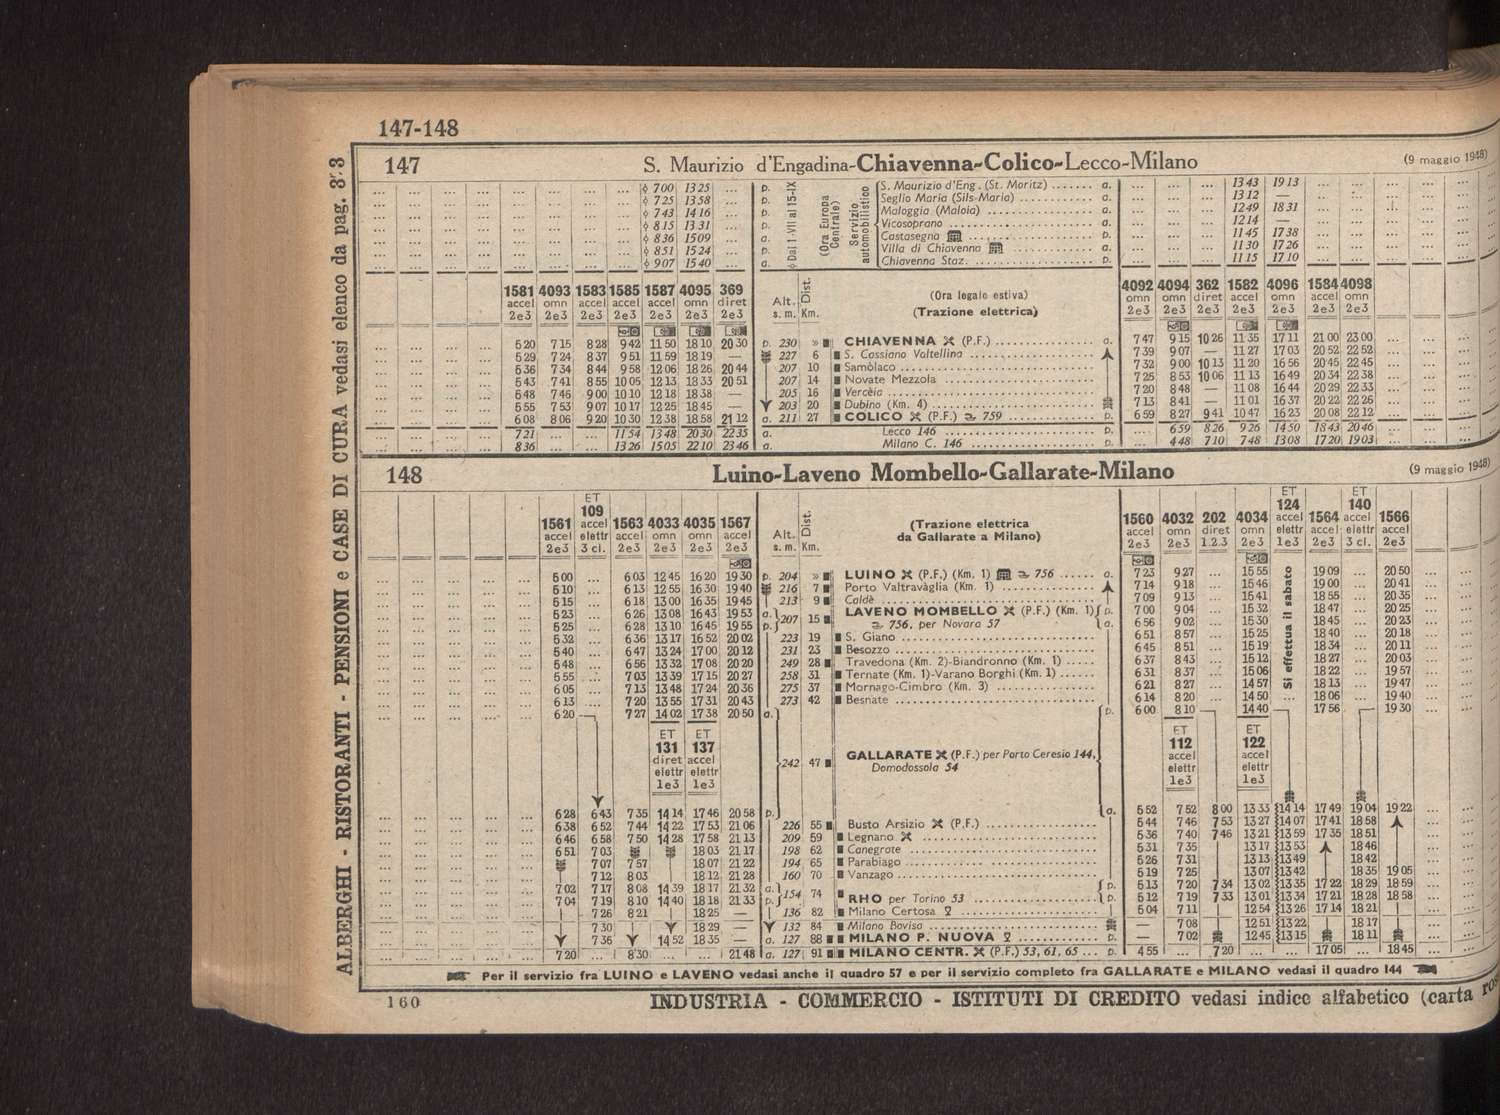 147-148
147 S. Maurizio d'Engadina-Chiavenna-Colico-Lecco-Milano (9 maggio 1948)
... ... ... ... ... ... ... 700 1325 ... p. S. Maurizio d'Eng. (St. Moritz) ....... a. ... ... ... 1343 1913 ... ... ... ... ...
... ... ... ... ... ... ... 725 1358 ... p. Seglio Maria (Sils-Maria) ............ a. ... ... ... 1312 — ... ... ... ... ...
... ... ... ... ... ... ... 743 1416 ... p. Maloggia (Maloia) ................. a. ... ... ... 1249 1831 ... ... ... ... ...
... ... ... ... ... ... ... 815 1331 ... p. Vicosoprano ........................ a. ... ... ... 1214 — ... ... ... ... ...
... ... ... ... ... ... ... 836 1509 ... a. Castasegna ..................... p. ... ... ... 1145 1738 ... ... ... ... ...
... ... ... ... ... ... ... 851 1524 ... p. Villa di Chiavenna .............. a. ... ... ... 1130 1726 ... ... ... ... ...
... ... ... ... ... ... ... 907 1540 ... a. Chiavenna Staz. .................... p. ... ... ... 1115 1710 ... ... ... ... ...
Dal 1-VII al 15-IX
(Ora Europa Centrale)
Servizio automobilistico
1581 4093 1583 1585 1587 4095 369 Alt. Dist. (Ora legale estiva) 4092 4094 362 1582 4096 1584 4098
accel omn accel accel accel omn diret omn omn diret accel omn accel omn
2e3 2e3 2e3 2e3 2e3 2e3 2e3 s. m. Km. (Trazione elettrica) 2e3 2e3 2e3 2e3 2e3 2e3 2e3
520 715 828 942 1150 1810 2030 p. 230 » CHIAVENNA (P.F.) ..................... a. 747 915 1026 1135 1711 2100 2300
529 724 837 951 1159 1819 — 227 6 S. Cassiano Valtellina ..................... 739 907 — 1127 1703 2052 2252
536 734 844 958 1206 1826 2044 207 10 Samòlaco ............................ 732 900 1013 1120 1656 2045 2245
543 741 855 1005 1213 1833 2051 207 14 Novate Mezzola ......................... 725 853 1006 1113 1649 2034 2238
548 746 900 1010 1218 1838 — 205 16 Vercèia .................................. 720 848 — 1108 1644 2029 2233
555 753 907 1017 1225 1845 — 203 20 Dubino (Km. 4) ........................... 713 841 — 1101 1637 2022 2226
608 806 920 1030 1238 1858 2112 a. 211 27 COLICO (P.F.) 759 ............... p. 659 827 941 1047 1623 2008 2212
721 ... ... 1154 1348 2030 2235 a. Lecco 146 ....................... p. ... 659 826 926 1450 1843 2046
836 ... ... 1326 1505 2210 2346 a. Milano C. 146 ................... p. ... 448 710 748 1308 1720 1903
148 Luino-Laveno Mombello-Gallarate-Milano (9 maggio 1948)
ET ET ET
109 124 140
1561 accel 1563 4033 4035 1567 Alt. Dist. (Trazione elettrica 1560 4032 202 4034 accel 1564 accel 1566
accel elettr accel omn omn accel da Gallarate a Milano) accel omn diret omn elettr accel elettr accel
2e3 3 cl. 2e3 2e3 2e3 2e3 s. m. Km. 2e3 2e3 1.2.3 2e3 1e3 2e3 3 cl. 2e3
500 ... 603 1245 1620 1930 p. 204 » LUINO (P.F.) (Km. 1) 756 ...... a. 723 927 ... 1555 1909 ... 2050
510 ... 613 1255 1630 1940 216 7 Porto Valtravàglia (Km. 1) ............... 714 918 ... 1546 1900 ... 2041
515 ... 618 1300 1635 1945 213 9 Caldè .................................. 709 913 ... 1541 1855 ... 2035
523 ... 626 1308 1643 1953 a. 207 15 LAVENO MOMBELLO (P.F.) (Km. 1) p. 700 904 ... 1532 1847 ... 2025
525 ... 628 1310 1645 1955 p. 756, per Novara 57 a. 656 902 ... 1530 1845 ... 2023
532 ... 636 1317 1652 2002 223 19 S. Giano ................................ 651 857 ... 1525 1840 ... 2018
540 ... 647 1324 1700 2012 231 23 Besozzo ................................. 645 851 ... 1519 1834 ... 2011
548 ... 656 1332 1708 2020 249 28 Travedona (Km. 2)-Biandronno (Km. 1) ..... 637 843 ... 1512 1827 ... 2003
555 ... 703 1339 1715 2027 258 31 Ternate (Km. 1)-Varano Borghi (Km. 1) ...... 631 837 ... 1506 1822 ... 1957
605 ... 713 1348 1724 2036 275 37 Mornago-Cimbro (Km. 3) ................. 621 827 ... 1457 1813 ... 1947
613 ... 720 1355 1731 2043 273 42 Besnate .................................. 614 820 ... 1450 1806 ... 1940
620 727 1402 1738 2050 a. p. 600 810 1440 1756 1930
Si effettua il sabato
ET ET ET ET
131 137 112 122
diret accel 242 47 GALLARATE (P.F.) per Porto Ceresio 144, accel accel
elettr elettr Domodossola 54 elettr elettr
1e3 1e3 1e3 1e3
628 643 735 1414 1746 2058 p. a. 552 752 800 1333 1414 1749 1904 1922
638 652 744 1422 1753 2106 226 55 Busto Arsizio (P.F.) ................... 544 746 753 1327 1407 1741 1858
646 658 750 1428 1758 2113 209 59 Legnano ............................... 536 740 746 1321 1359 1735 1851
651 703 1803 2117 198 62 Canegrate ............................... 531 735 1317 1353 1846
707 757 1807 2122 194 65 Parabiago ............................... 526 731 1313 1349 1842
712 803 1812 2128 160 70 Vanzago ................................. 519 725 1307 1342 1835 1905
702 717 808 1439 1817 2132 a. 154 74 RHO per Torino 53 ..................... p. 513 720 734 1302 1335 1722 1829 1859
704 719 810 1440 1818 2133 p. p. 512 719 733 1301 1334 1721 1828 1858
726 821 1825 — 136 82 Milano Certosa ....................... 504 711 1254 1326 1714 1821
730 1829 — 132 84 Milano Bovisa ........................... — 708 1251 1322 1817
736 1452 1835 — a. 127 88 MILANO P. NUOVA ............... p. — 702 1245 1315 1811
720 ... 830 ... ... 2148 a. 127 91 MILANO CENTR. (P.F.) 53, 61, 65 ... p. 455 ... 720 ... ... 1705 ... 1845
Per il servizio fra LUINO e LAVENO vedasi anche il quadro 57 e per il servizio completo fra GALLARATE e MILANO vedasi il quadro 144
160 INDUSTRIA - COMMERCIO - ISTITUTI DI CREDITO vedasi indice alfabetico (carta
ALBERGHI - RISTORANTI - PENSIONI e CASE DI CURA vedasi elenco da pag. 3